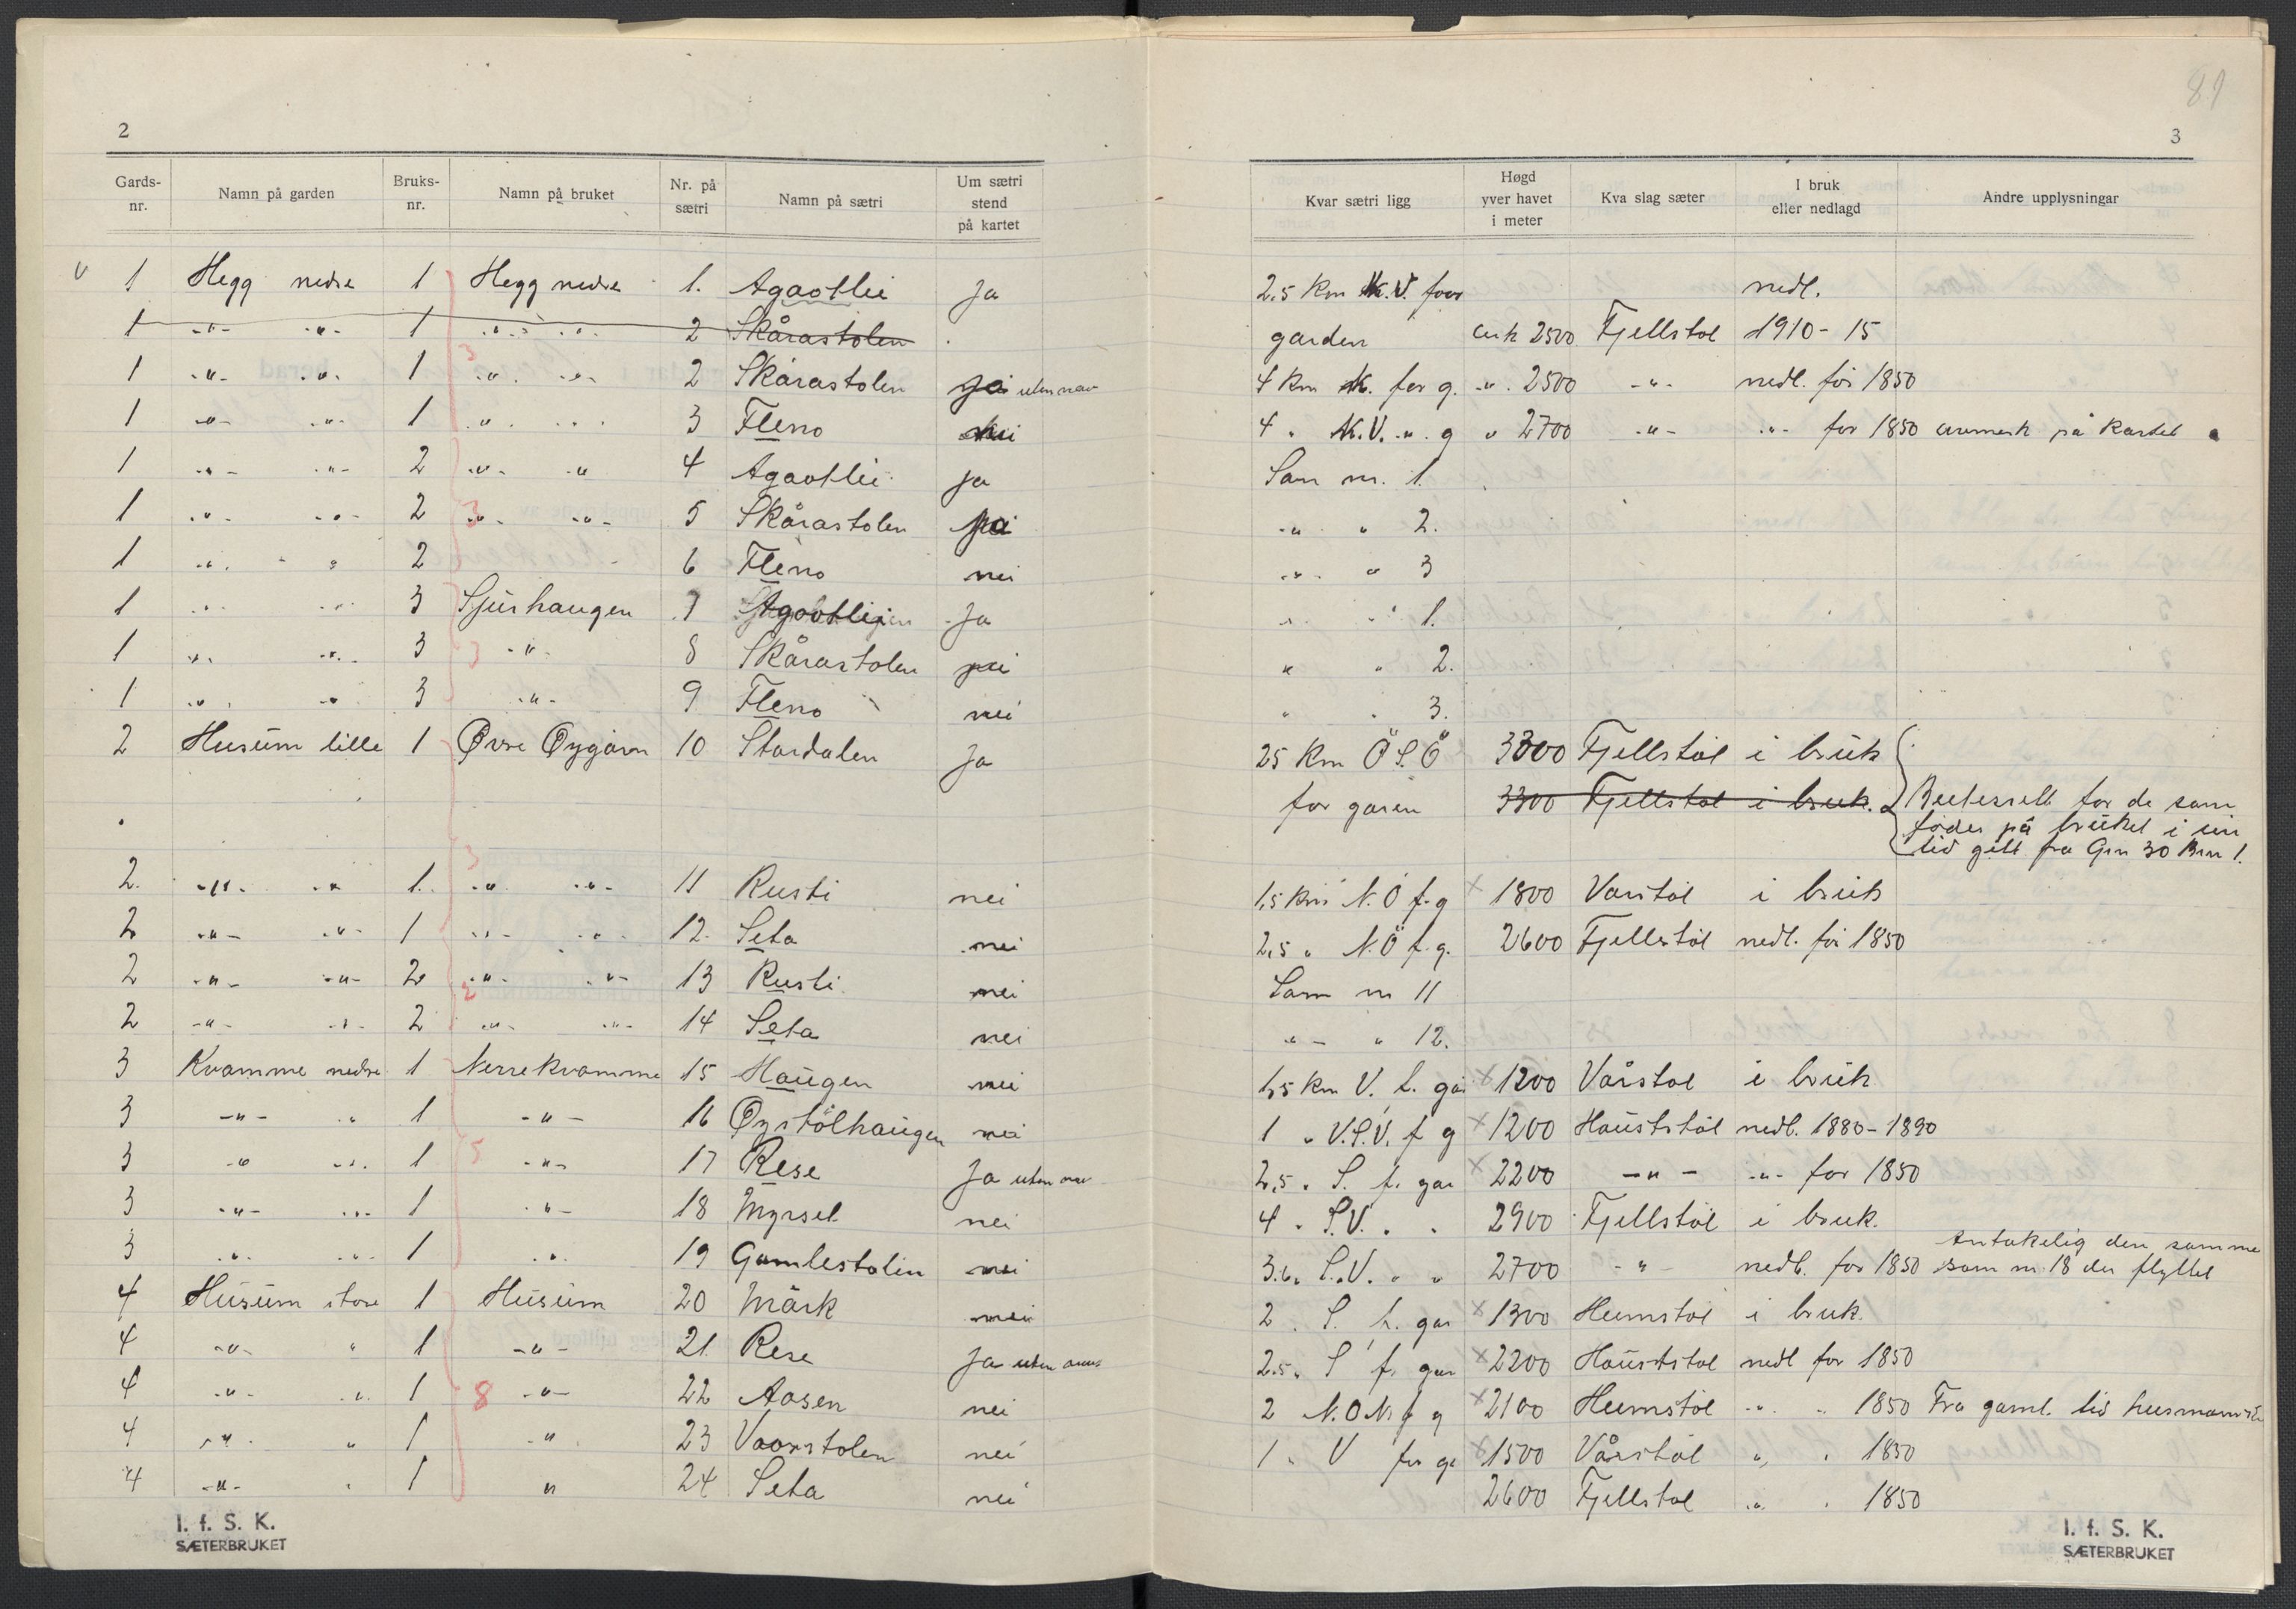 2
Gards-nr. Namn på garden Bruks-nr. Namn på bruket Nr. på sætri Namn på sætri Um sætri stend på kartet
v 1 Hegg nedre 1 Hegg nedre 1. Agaotlii Ja
1 -"- -"- 1 -"- -"- 2 Skårastolen
1 -"- -"- 1 -"- -"- 2 Skårastolen Ja uten navn
1 -"- -"- 1 -"- 3 Fleno nei
1 -"- -"- 2 -"- -"- 4 Agaotlii Ja
1 -"- -"- 2 -"- -"- 5 Skårastolen Ja
1 -"- " 2 6 Fleno nei
1 -"- -"- 3 Sjurhaugen 7 Agaotlii Ja
1 -"- -"- 3 -"- 8 Skårastolen
1 -"- -"- 3 -"- 9 Fleno nei
2 Husum lille 1 Øvre Øygarn 10 Stardalen Ja
2. -"- -"- 1. -"- -"- 11 Rusti nei
2 -"- -"- 1 -"- -"- 12. Seta nei
2 -"- -"- 2 -"- -"- 13 Rusti nei
2 -"- -"- 2 -"- -"- 14 Seta nei
3 Kvamme nedre 1 Nerre Kvamme 15 Haugen nei
3 -"- " 1 -"- 16 Øystølhaugen nei
3 -"- -"- 1 -"- 17 Rese Ja uten nav
3 -"- -"- 1 -"- 18 Myrsel nei
3 -"- -"- 1 -"- 19 Gamlestolin nei
4 Husum store 1 Husum 20 Mårk nei
4 -"- " 1 -"- 21 Rese Ja uten navn
4 -"- -"- 1 -"- 22 Aasen nei
4 -"- " 1 -"- 23 Vaarstolen nei
4 -"- " 1 " 24 Seta nei
3
3
3
3
2
5
8
I. f. S. K.
SÆTERBRUKET
81
3
Kvar sætri ligg Høgd yver havet i meter Kva slag sæter I bruk eller nedlagd Andre upplysningar
2,5 Km N.V. for nedl.
garden cirk 2500 Fjellstøl 1910-15
4 Km N. for g. -"- 2500 -"- nedl. för 1850
4 " N.V. -"- g " 2700 -"- -"- for 1850 avmerk på Kartet
Sam nr. 1
-"- " 2.
-"- " 3
-"- " 1.
" " 2.
" " 3.
25 Km Ö S.Ö 3300 Fjellstöl i bruk
for garen 3300 Fjellstøl i bruk. Beitesrett for de som
födes på bruket i vin
tid gitt fra Grn 30 Brn 1.
1,5 Km N.Ö f. g x 1800 Varstöl i bruk
2,5 " N.Ö f. g. 2600 Fjellstöl nedl. för 1850
Sam nr 11
-"- " 12.
1,5 Km V. f. går x 1200 Vårstøl i bruk
1 " V.S.V. f g x 1200 Hauststøl nedl. 1880-1890
2,5 " S. f. gar x 2200 -"- -"- for 1850
4 " S.V. " " 2900 Fjellstöl i bruk.
3.6 " S.V. " " 2700 -"- nedl. for 1850 Antakelig den samme
som nr 18 der flyttet
2 " S. f. gar x 1300 Heimstøl i bruk.
2.5 " S f. gar x 2200 Hauststøl nedl for 1850
2 N.O.N. f g x 2100 Heimstøl -"- " 1850 Fra gaml. tid
1 " V for ga x 1500 Vårstøl " " 1850
2600 Fjellstøl " " 1850
I. f. S. K.
SÆTERBRUKET